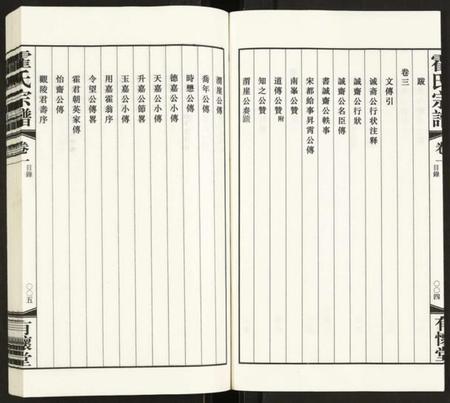 霍氏宗譜
卷一
目錄
〇〇四
有懷堂
跋
卷三
文傳引
诚斋公行状注释
誠齋公行狀
誠齋公名臣傳
書誠齋公軼事
宋都給事昇霄公傳
南峯公贊
道傳公贊附
知之公贊
渭崖公奏議
渭崖公傳
喬年公傳
時懋公傳
德嘉公小傳
天嘉公小傳
升嘉公節畧
玉嘉公小傳
用嘉霍翁序
令望公傳畧
霍君朝英家傳
怡齋公傳
觀陵君壽序
霍氏宗譜
卷一
目錄
〇〇五
有懷堂